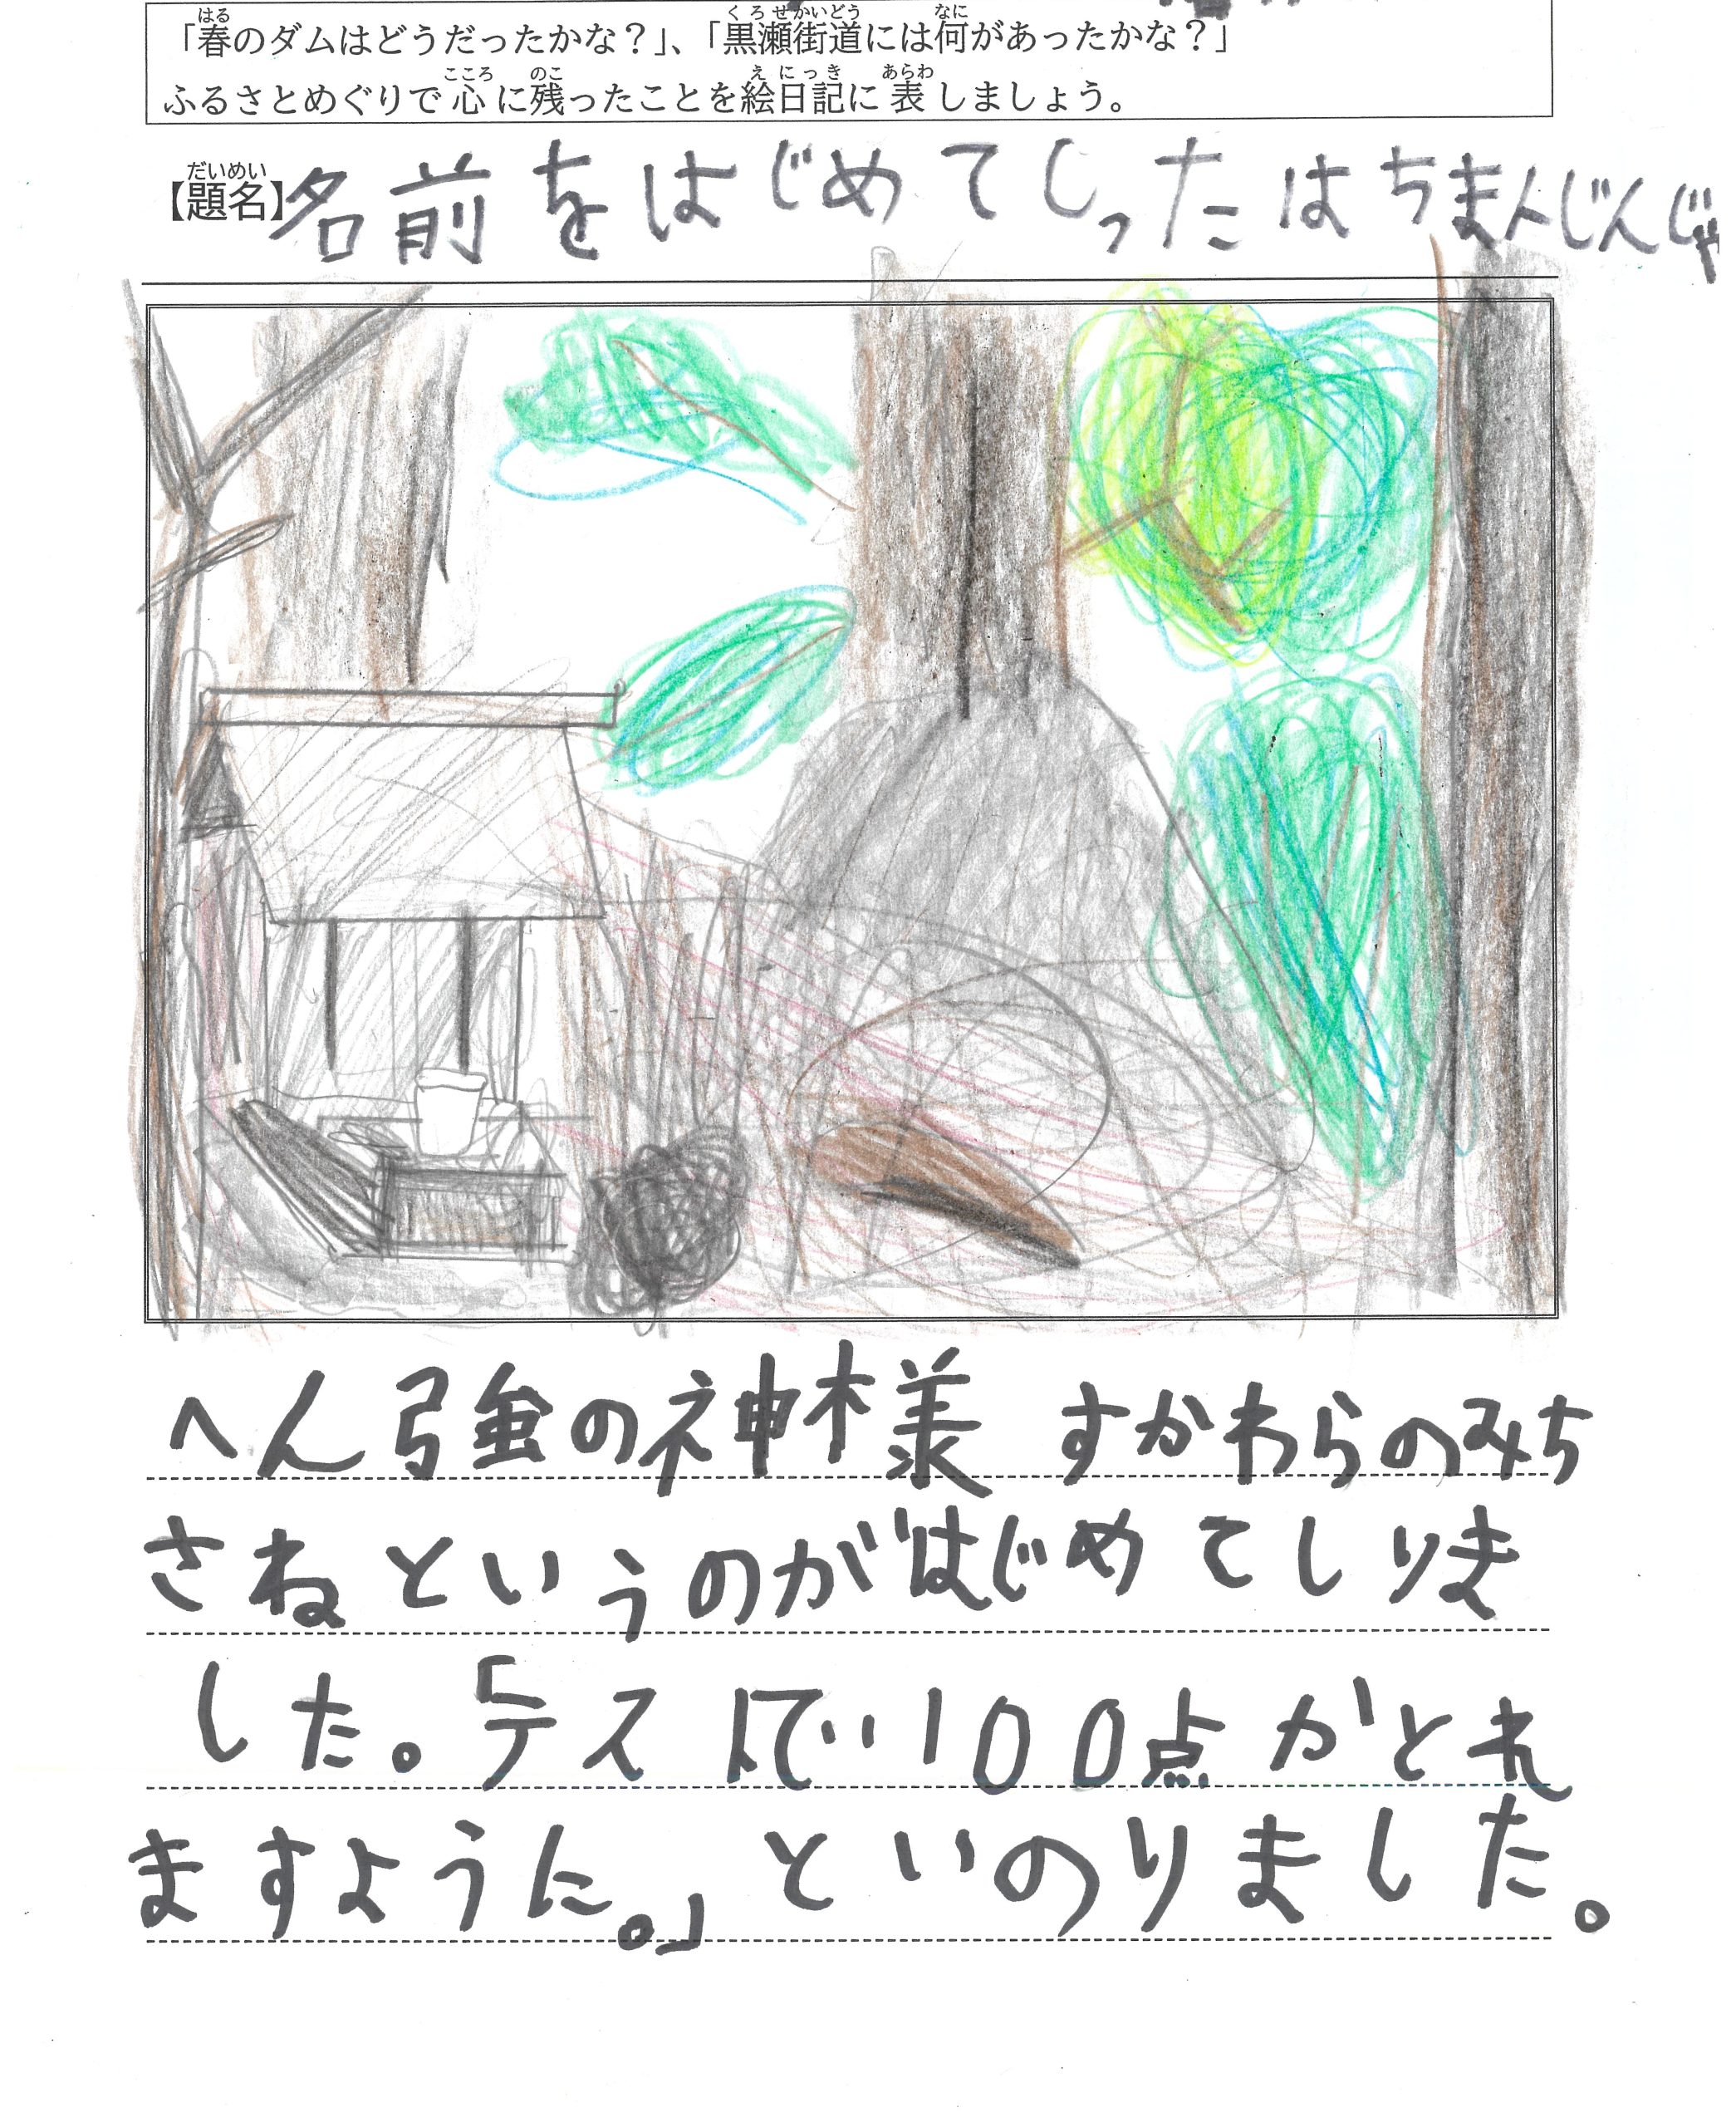 「春のダムはどうだったかな？」、「黒瀬街道には何があったかな？」
ふるさとめぐりで心に残ったことを絵日記に表しましょう。
【題名】名前をはじめてしったはちまんじんじゃ
へん強の神様 すかわらのみち
さねというのがはじめてしりま
した。「テストで100点がとれ
ますように。」といのりました。